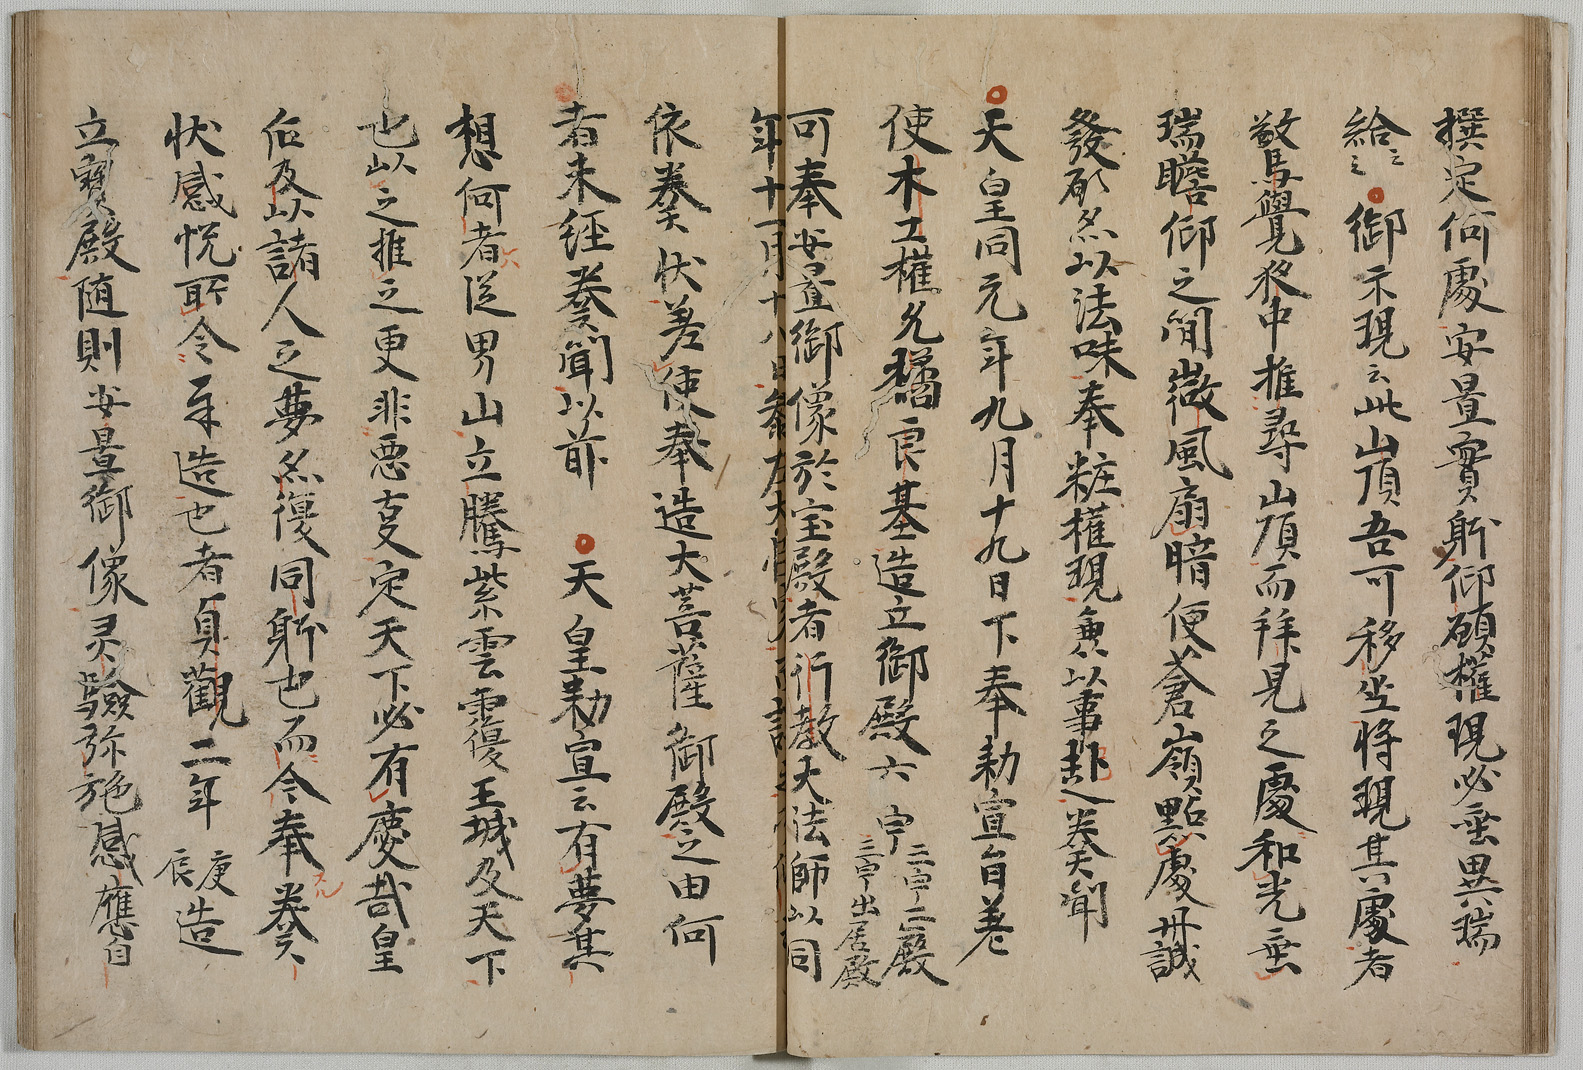 撰定何處安置實躰仰願權現必垂異瑞
給之々御示現云此山頂吾可移坐將現其處者
敬馬覺夜中推尋山頂而拜見之處和光垂
瑞瞻仰之間微風扇暗便蒼嶺點處丹誠
發願然以法味奉粧權現兼以事趣奏聞
天皇同元年九月十九日下奉勅宣旨差
使木工權允橘良基造立御殿六宇三宇正殿三宇出居殿
可奉安置御像於宝殿者行教大法師以同
年十一月十八日参左大
依奏状差使奉造大菩薩御殿之由何
者未經奏聞以前天皇勅宣云有夢其
想何者從男山立騰紫雲覆王城及天下
也以之推之更非悪支定天下必有慶哉皇
后及以諸人之夢然復同躰也而今奉奏
状感悦所令奉造也者貞觀二年庚辰造
立寶殿随則安置御像灵驗弥施感應自